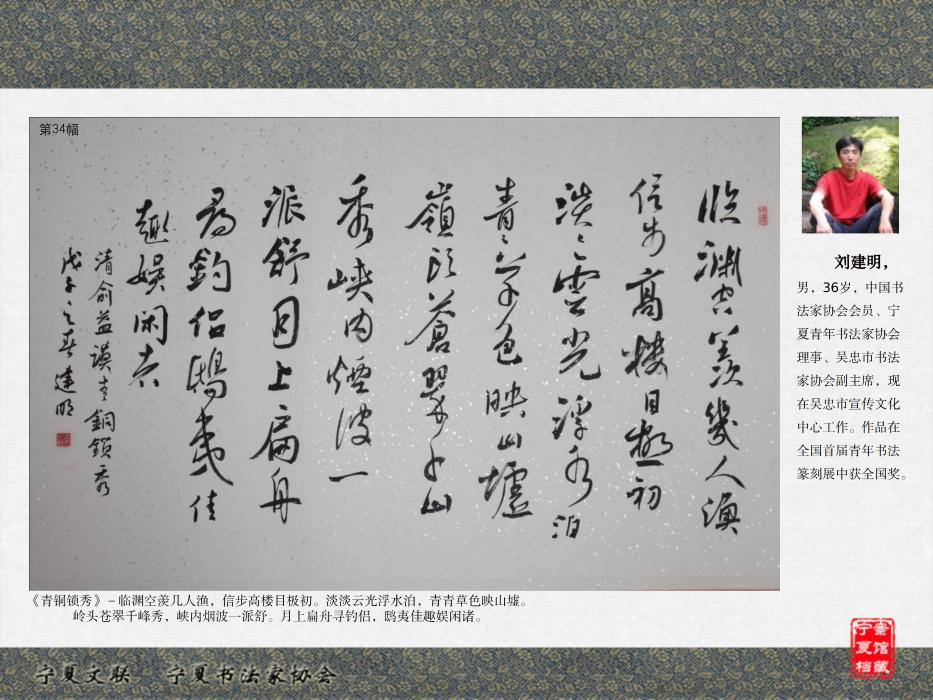 第34幅
临渊空羡几人渔
信步高楼目极初
淡淡云光浮水泊
青青草色映山墟
嶺頭蒼翠千山
秀峡内煙波一
派舒月上扁舟
尋釣侣鴟夷佳
趣娱闲者
清俞益谟青銅鎖秀
戊子之春建明
刘建明，
男，36岁，中国书
法家协会会员、宁
夏青年书法家协会
理事、吴忠市书法
家协会副主席，现
在吴忠市宣传文化
中心工作。作品在
全国首届青年书法
篆刻展中获全国奖。
《青铜锁秀》–临渊空羡几人渔，信步高楼目极初。淡淡云光浮水泊，青青草色映山墟。
岭头苍翠千峰秀，峡内烟波一派舒。月上扁舟寻钓侣，鸱夷佳趣娱闲诸。
宁夏文联 宁夏书法家协会
宁夏档案馆藏